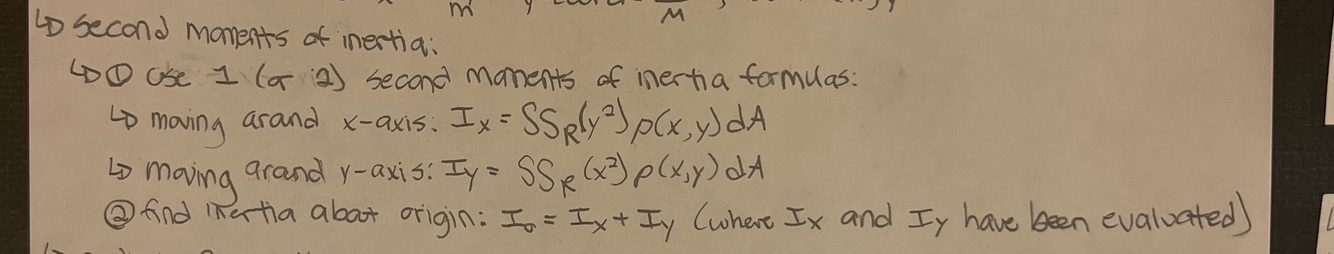 m y M
↳ second moments of inertia:
↳ ① use 1 (or 2) second moments of inertia formulas:
↳ moving around x-axis: Ix = SSR(y²)ρ(x,y)dA
↳ moving around y-axis: Iy = SSR(x²)ρ(x,y)dA
② find inertia about origin: I₀ = Ix + Iy (where Ix and Iy have been evaluated)